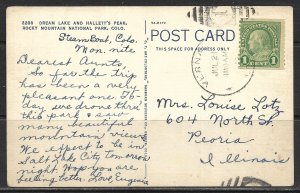 2288 DREAM LAKE AND HALLETT'S PEAK,
ROCKY MOUNTAIN NATIONAL PARK, COLO.
POST CARD
THIS SPACE FOR ADDRESS
Steamboat, Colo.
Mon. nite
Dearest Aunto,
So far the trip
has been a very
pleasant one. To-
day we drove thru
this park & saw
many beautiful
mountain views.
We expect to be in
Salt Lake City tomorrow
night. Hope you are
feeling better. Love, Eugenia
Mrs. Louise Lotz
604 North St
Peoria
Illinois
VERNAL
1 CENT 1